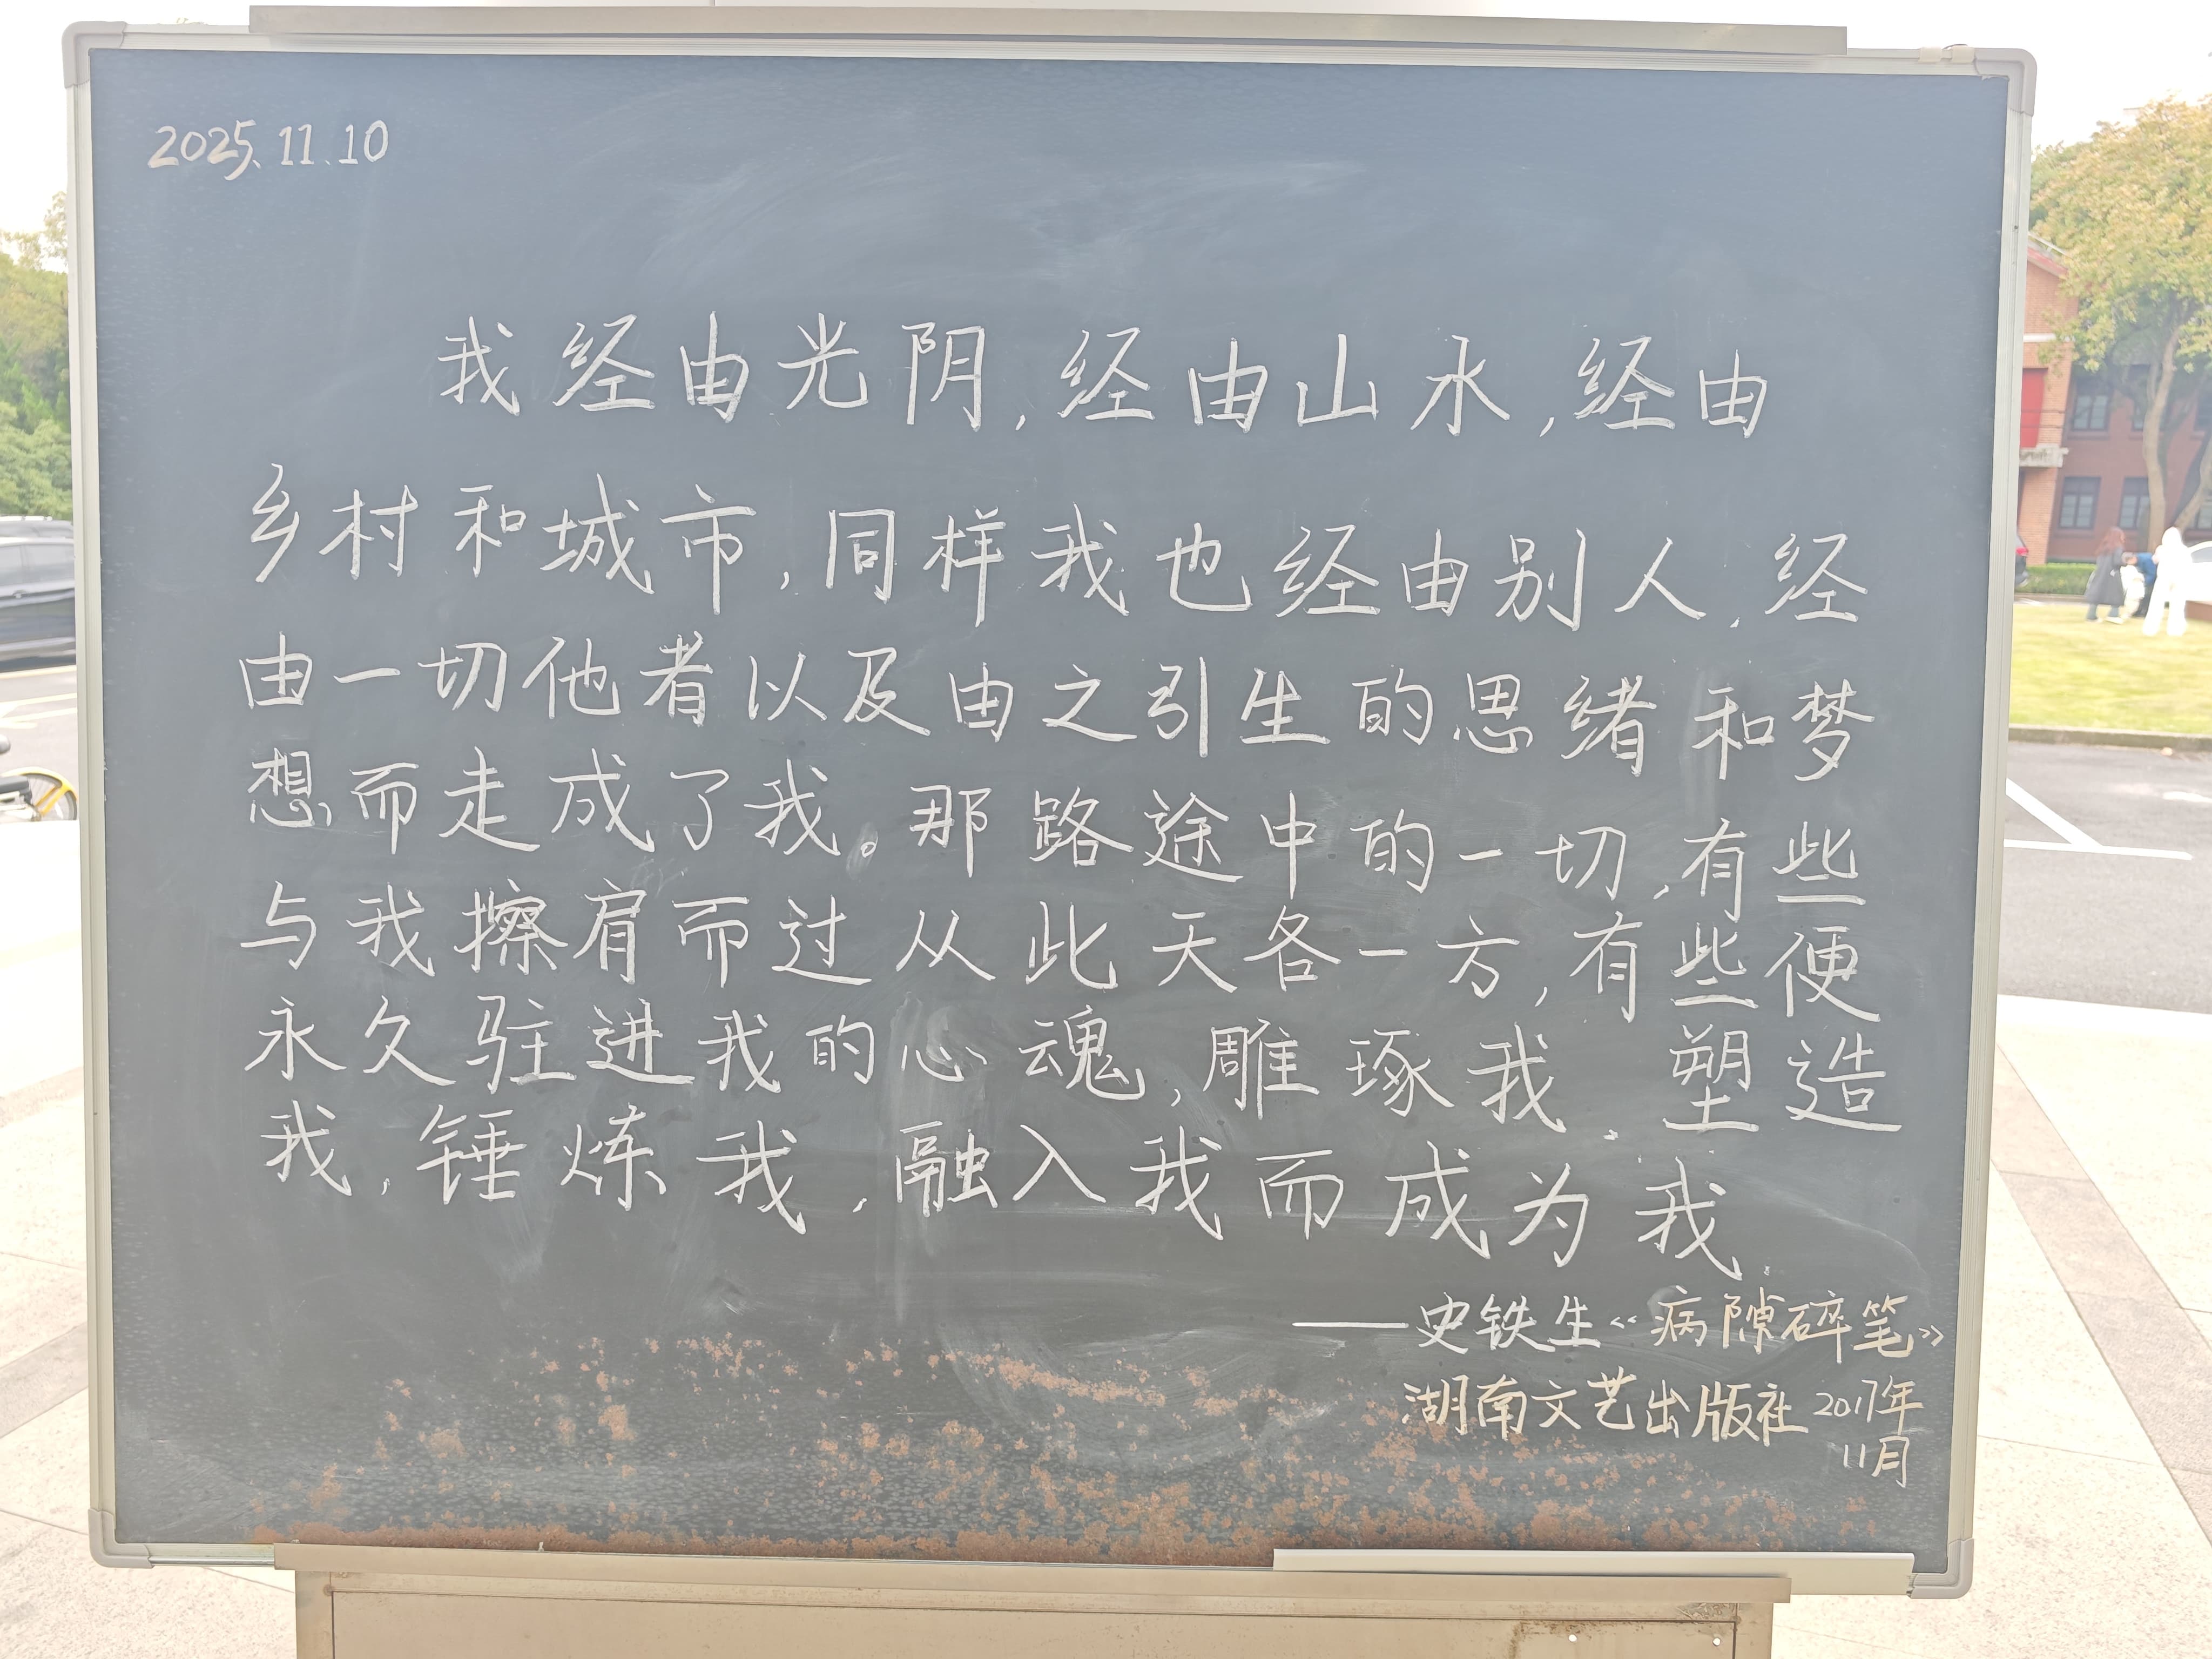 2025.11.10
我经由光阴,经由山水,经由
乡村和城市,同样我也经由别人,经
由一切他者以及由之引生的思绪和梦
想,而走成了我。那路途中的一切,有些
与我擦肩而过从此天各一方,有些便
永久驻进我的心魂,雕琢我,塑造
我,锤炼我,融入我而成为我.
——史铁生《病隙碎笔》
湖南文艺出版社 2017年
11月